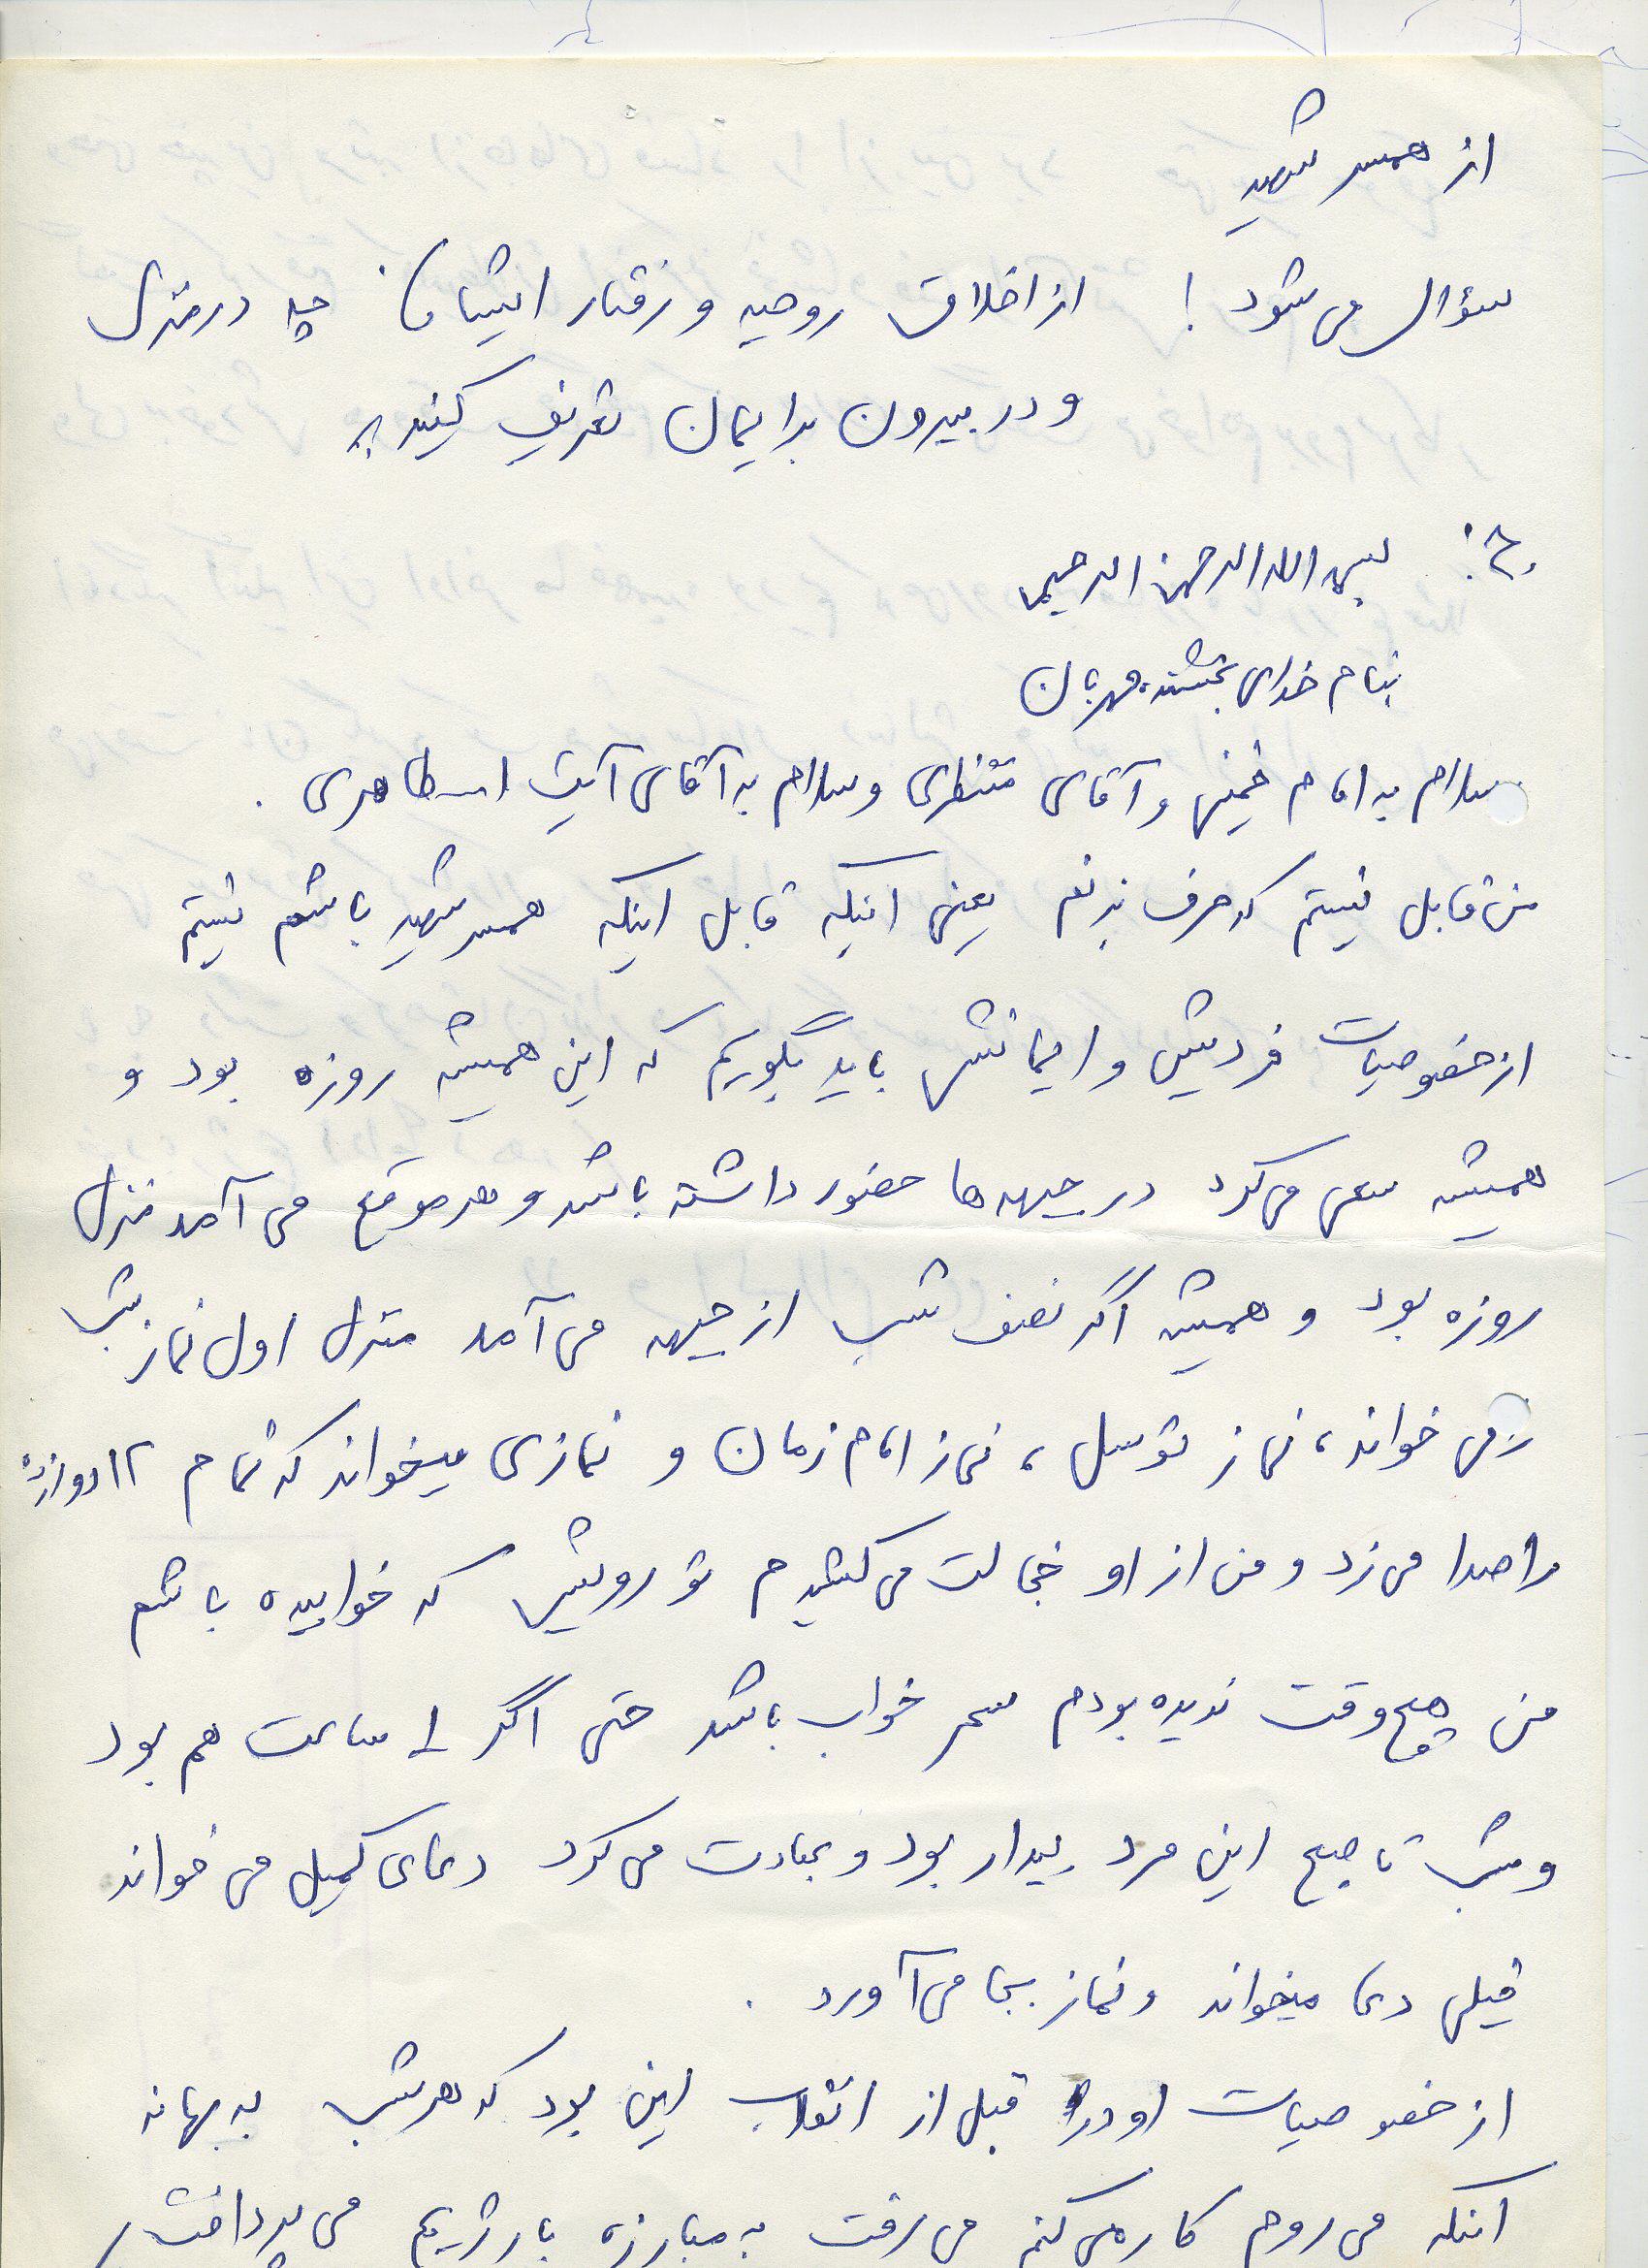 از همسر شهید
سؤال می‌شود ! از اخلاق روحیه و رفتار ایشان چه در منزل
و در بیرون برایمان تعریف کنید
ج : بسم الله الرحمن الرحیم
بنام خدای بخشنده مهربان
سلام به امام خمینی و آقای منتظری و سلام به آقای آیت ا... طاهری .
من قابل نیستم که حرف بزنم یعنی اینکه قابل اینکه همسر شهید باشم نیستم
از خصوصیات فردیش و ایمانش باید بگویم که این همیشه روزه بود و
همیشه سعی می‌کرد در جبهه ها حضور داشته باشد و هر موقع می‌آمد منزل
روزه بود و همیشه اگر نصف شب از جبهه می‌آمد منزل اول نماز شب
می‌خواند ، نماز توسل ، نماز امام زمان و نمازی میخواند که تمام ۱۲
را صدا می‌زد و من از او خجالت می‌کشیدم تو رویش که خوابیده باشم
من هیچ وقت ندیده بودم سحر خواب باشد حتی اگر ۱ ساعت هم بود
و شب تا صبح این مرد بیدار بود و عبادت می‌کرد دعای کمیل می‌خواند
خیلی دعا میخواند و نماز بجا می‌آورد .
از خصوصیات او در قبل از انقلاب این بود که هر شب به بهانه
اینکه می‌روم کار می‌کنم می‌رفت به مبارزه با رژیم می‌پرداخت